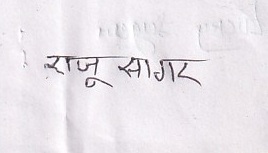 राजू सागर